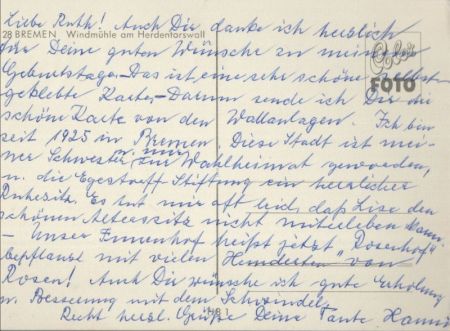 Liebe Ruth! Auch Dir danke ich herzlich
28 BREMEN Windmühle am Herdentorswall
für Deine guten Wünsche zu meinem
Geburtstage. Das ist eine sehr schöne selbst-
Color
FOTO
geklebte Karte. - Darum sende ich Dir die
schöne Karte von den Wallanlagen. Ich bin
seit 1925 in Bremen. Diese Stadt ist mei-
ner Schwester u. mir zur Wahlheimat geworden,
u. die Egestorff Stiftung ein herrlicher
Ruhesitz. Es tut mir oft leid, daß Lise den
schönen Alterssitz nicht miterleben kann.
- Unser Innenhof heißt jetzt "Rosenhof"
bepflanzt mit vielen Hunderten von
Rosen! Auch Dir wünsche ich gute Erholung
u. Besserung mit dem Schwindel.
Recht herzl. Grüße Deine Tante Hanni